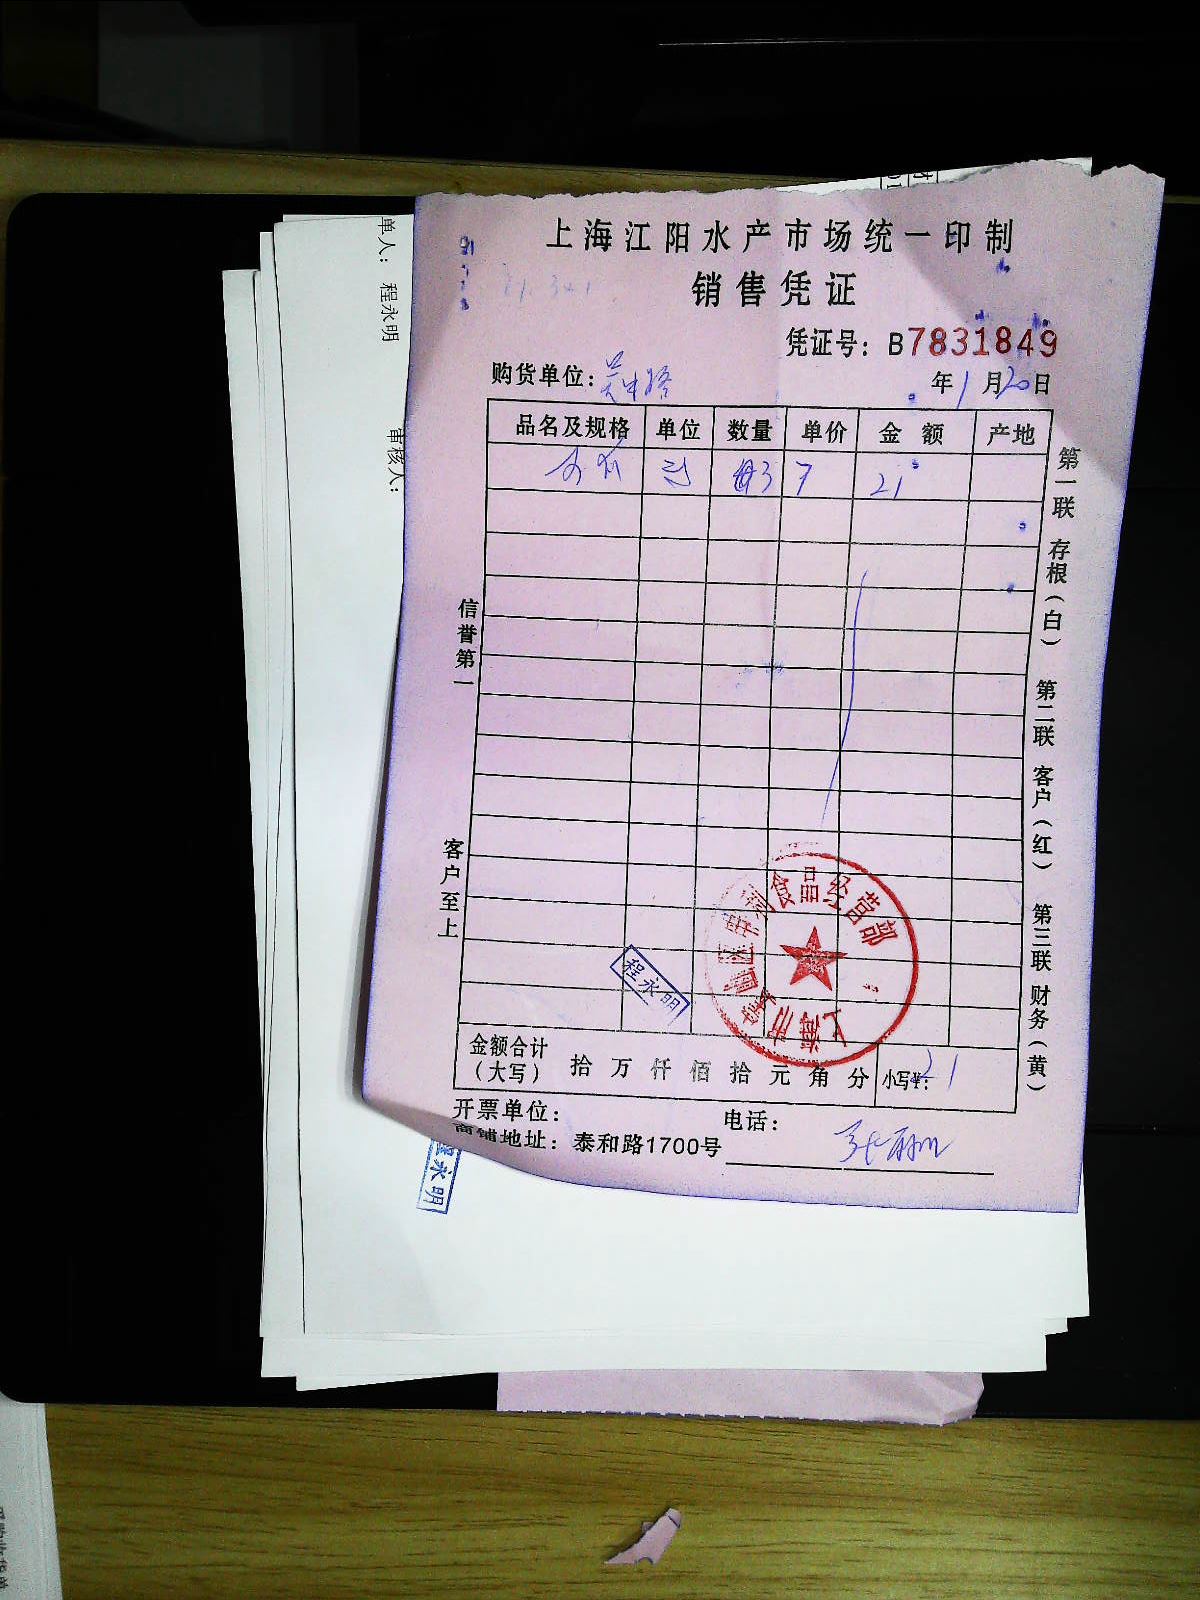 上海江阳水产市场统一印制
销售凭证
凭证号：B7831849
购货单位：吴中路
年1月20日
品名及规格 单位 数量 单价 金额 产地
3 7 21
第一联 存根（白） 第二联 客户（红） 第三联 财务（黄）
信誉第一
客户至上
食品经营部
上海市
程永明
金额合计（大写） 拾 万 仟 佰 拾 元 角 分 小写¥：21
开票单位：
电话：
商铺地址：泰和路1700号
单人：程永明
审核人：
程永明